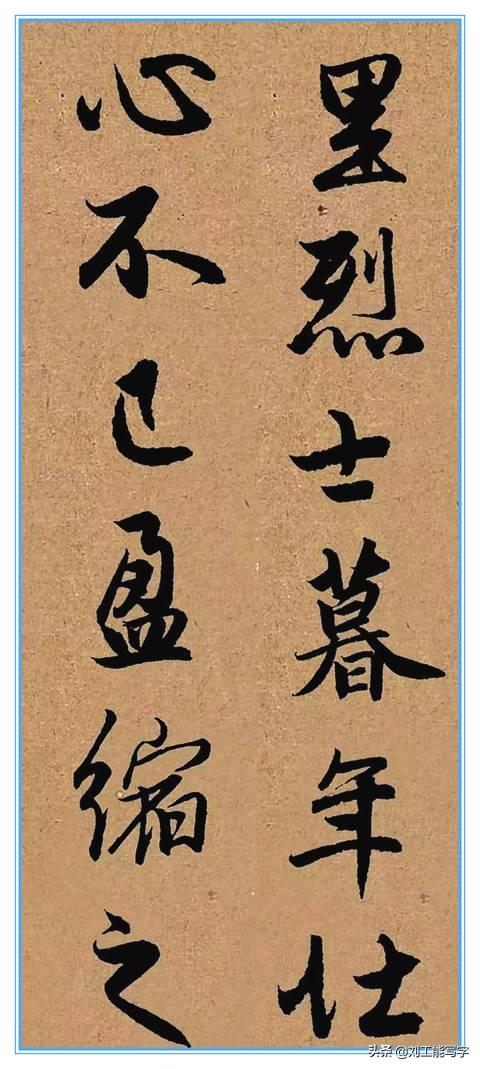 里烈士暮年壮
心不已盈缩之
头条 @刘工能写字